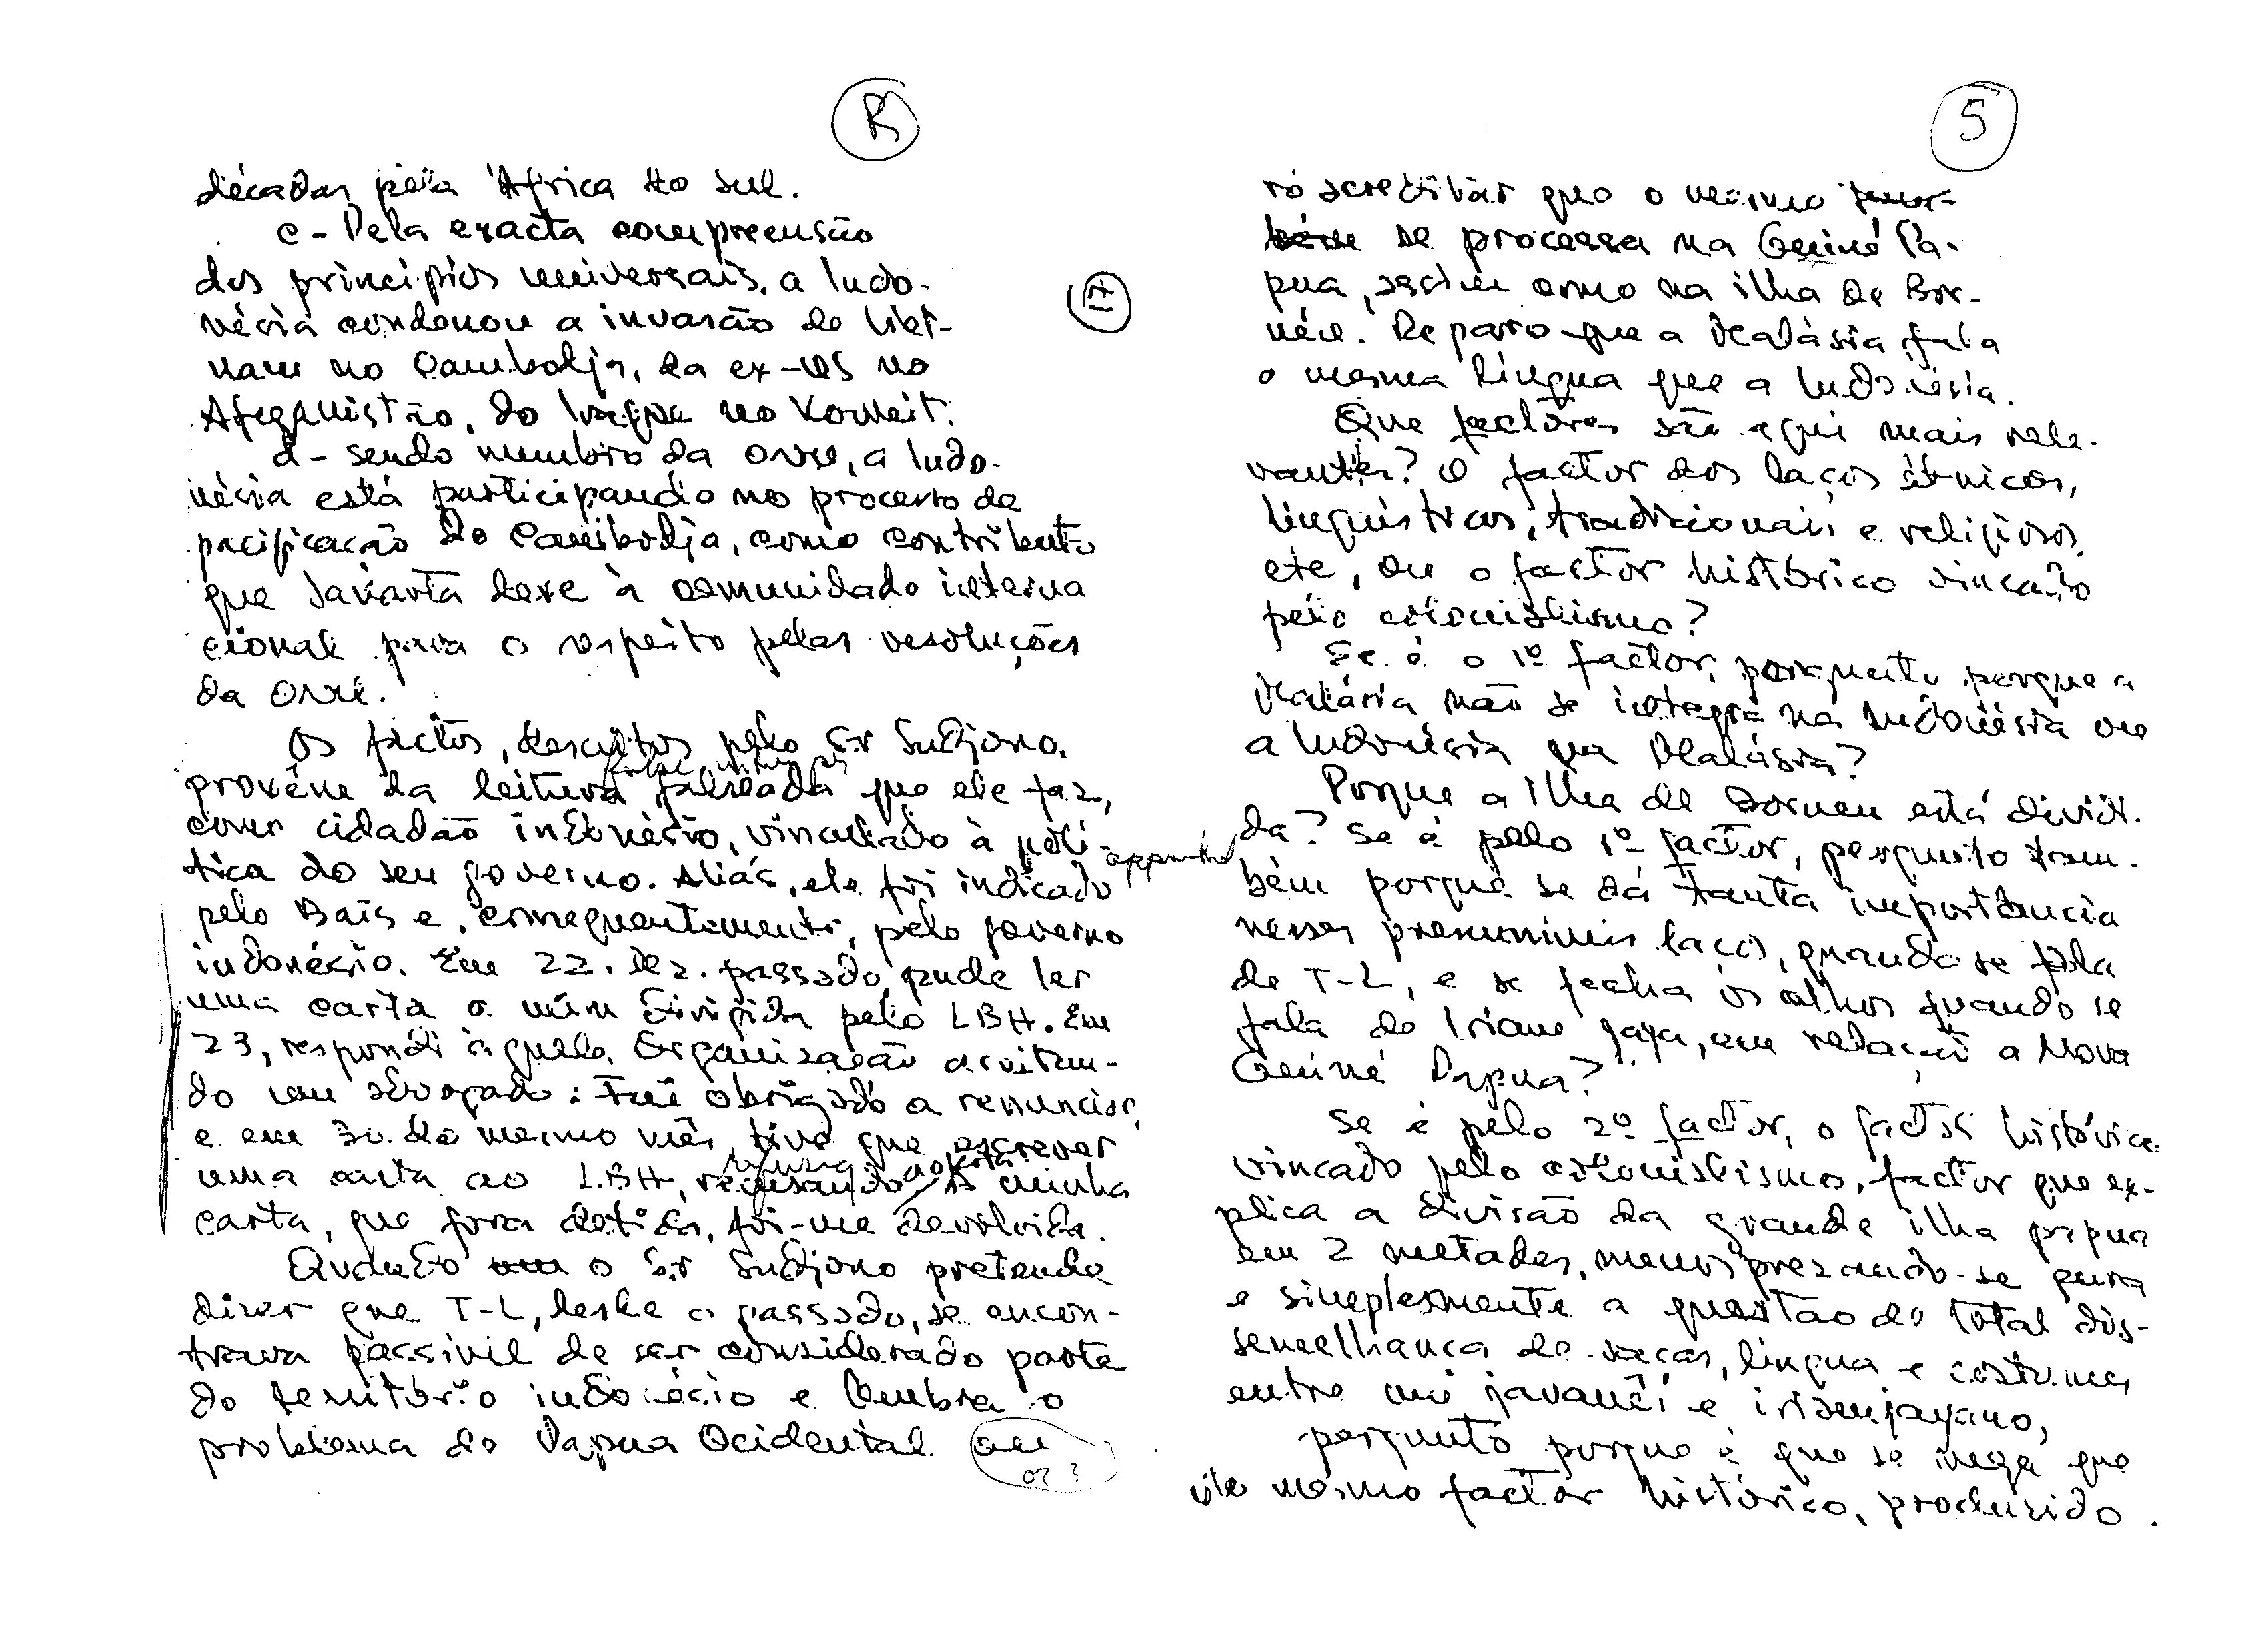 R
décadas pela África do Sul.
c - Pela exacta compreensão
dos princípios universais, a Indo-
nésia condenou a invasão do Viet-
nam no Cambodja, da ex-URS no
Afeganistão, do Iraque no Koweit.
d - sendo membro da ONU, a Indo-
nésia está participando no processo de
pacificação do Cambodja, como contributo
que Jakarta deve à comunidade interna
cional para o respeito pelas resoluções
da ONU.
Os factos, descritos pelo Sr Sudjono,
provêm da leitura falseada que ele faz,
como cidadão indonésio, vinculado à polí-
tica do seu governo. Aliás, ele foi indicado
appointed
pelo Bais e, consequentemente, pelo governo
indonésio. Em 22. Dez. passado, pude ler
uma carta a mim dirigida pelo LBH. Em
23, respondi àquela Organização aceitan-
do um advogado: Fui obrigado a renunciar,
e em 30 do mesmo mês, tive que escrever
uma carta ao LBH, recusando a minha
carta, que fora detida, foi-me devolvida.
Quando o Sr Sudjono pretende
dizer que T-L, desde o passado, se encon-
trava passível de ser considerado parte
do território indonésio e lembra o
problema do Papua Ocidental ou
or ?
S
17
rá acreditar que o mesmo tam-
bém se processa na Guiné Pa-
pua, assim como na ilha de Bor-
néu. Reparo que a Malásia fala
a mesma língua que a Indonésia.
Que factores são aqui mais rele-
vantes? O factor dos laços étnicos,
linguísticos, tradicionais e religiosos,
etc, ou o factor histórico vincado
pelo colonialismo?
Se é o 1º factor, pergunto porque a
Malásia não se integra na Indonésia ou
a Indonésia na Malásia?
Porque a Ilha de Borneu está dividi-
da? Se é pelo 1º factor, pergunto tam-
bém porque se dá tanta importância
nesses presumíveis laços, quando se fala
de T-L, e se fecha os olhos quando se
fala do Irian Jaya, em relação a Nova
Guiné Papua?
Se é pelo 2º factor, o factor histórico
vincado pelo colonialismo, factor que ex-
plica a divisão da grande ilha papua
em 2 metades, menosprezando-se pura
e simplesmente a questão da total dis-
semelhança de raças, língua e costumes
entre um javanês e irianjayano,
pergunto porque é que se nega que
este mesmo factor histórico, produzido